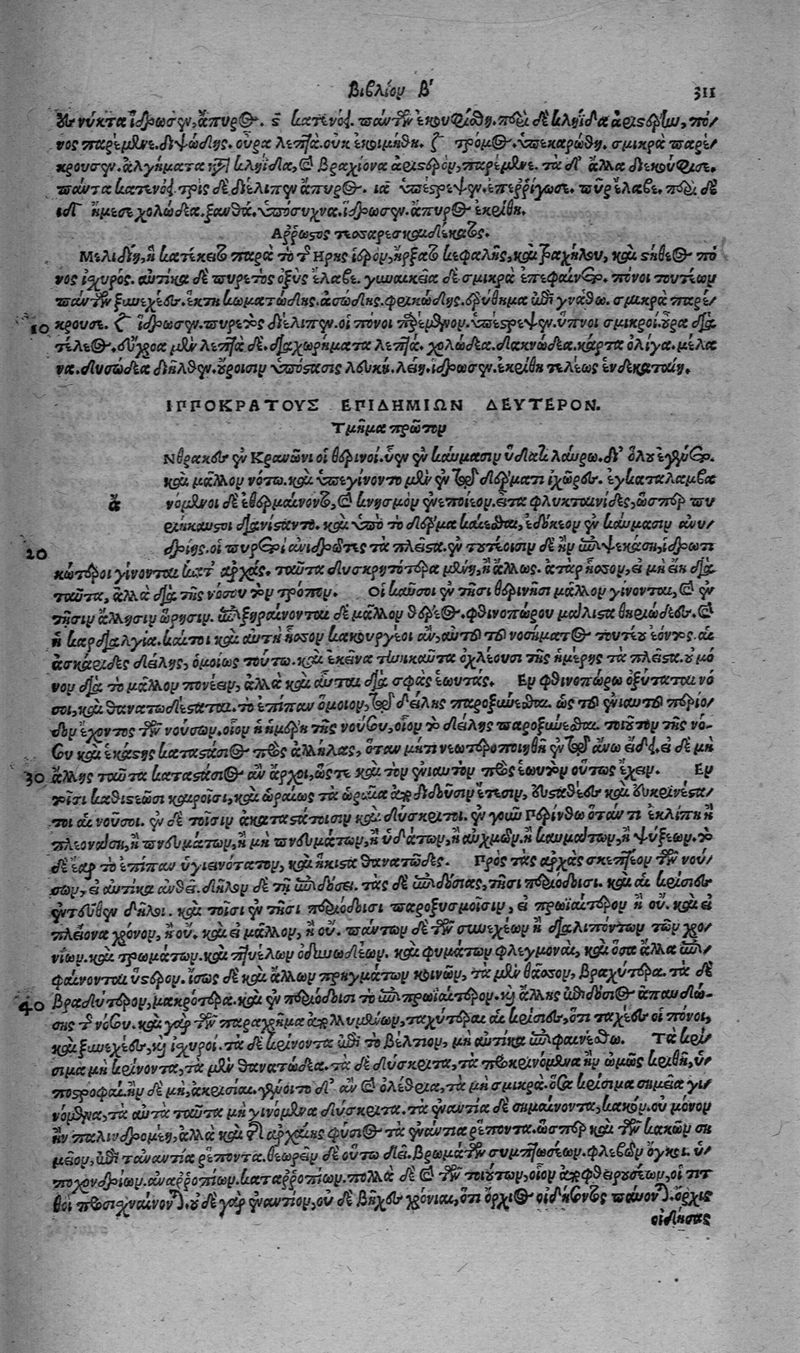 Βιβλίον Β΄ 311
νύκτα ἵδρωσεν, ἄπυρος. ϛ κατενόει. πάντων ἐκουφίσθη. περὶ δὲ κληῖδα ἀριστερὴν, πό-
νος παρέμεινε. διψώδης. οὖρα λεπτά. οὐκ ἐκοιμήθη. ζ τρόμος. ὑπεκαρώθη. σμικρὰ παρέ-
κρουσεν. ἀλγήματα κληῖδα, καὶ βραχίονα ἀριστερὸν, παρέμεινε. τὰ δ' ἄλλα διεκούφισε.
πάντα κατενόει. τρὶς δὲ διέλιπεν ἄπυρος. ια ὑπέστρεψεν. ἐπερρίγωσε. πῦρ ἔλαβε. περὶ δὲ
ιδ ἤμεσε χολώδεα. ξανθὰ. ὑπόσυχνα. ἵδρωσεν. ἄπυρος ἐκρίθη.
Αρρωστος τεσσαρεσκαιδέκατος.
Μελιδίη, ἣ κατέκειτο παρὰ τὸ τῆς Ηρης ἱερὸν, ἤρξατο κεφαλῆς, καὶ τραχήλου, καὶ στήθεος πό-
νος ἰσχυρός. αὐτίκα δὲ πυρετὸς ὀξὺς ἔλαβε. γυναικεῖα δὲ σμικρὰ ἐπεφαίνετο. πόνοι τουτέων
πάντων ξυνεχέες. ἕκτῃ κωματώδης. ἀσώδης. φρικώδης. ἐρύθημα ἐπὶ γνάθων. σμικρὰ παρέ-
10 κρουσε. ζ ἵδρωσεν. πυρετὸς διέλιπεν. οἱ πόνοι παρέμενον. ὑπέστρεψεν. ὕπνοι σμικροί. οὖρα διὰ
τέλεος. εὔχροα μὲν λεπτὰ δέ. διαχωρήματα λεπτά. χολώδεα. δακνώδεα. κάρτα ὀλίγα. μέλα
να. δυσώδεα διῆλθεν. οὔροισιν ὑπόστασις λευκή. λείη. ἵδρωσεν. ἐκρίθη τελέως ἑνδεκαταίη.
ΙΠΠΟΚΡΑΤΟΥΣ ΕΠΙΔΗΜΙΩΝ ΔΕΥΤΕΡΟΝ.
Τμῆμα πρῶτον
Νθρακες ἐν Κρανῶνι οἱ θερινοί. ὗεν ἐν καύμασιν ὕδατι λάβρῳ. δι' ὅλου ἐγένετο.
καὶ μᾶλλον νότῳ. καὶ ὑπεγίνοντο μὲν ἐν τῷ δέρματι ἰχῶρες. ἐγκαταλαμβα
ἄ νόμενοι δὲ ἐθερμαίνοντο, καὶ κνησμὸν ἐνεποίεον. εἶτα φλυκταινίδες, ὥσπερ πυ
ρίκαυστοι διανίσταντο. καὶ ὑπὸ τὸ δέρμα καίεσθαι, ἐδόκεον ἐν καύμασιν ἀνυ-
20 δρίης. οἱ πυρετοὶ ἀνιδρῶτες τὰ πλεῖστα. ἐν τουτέοισιν δὲ ἢν ἐπιψεκάσῃ, ἱδρωτι
κώτεροι γίνονται κατ' ἀρχάς. ταῦτα δυσκρητότερα μὲν ἢ, ἢ ἄλλως. ἀτὰρ ἧσσον, εἰ μὴ εἴη διὰ
ταῦτα, ἀλλὰ διὰ τῆς νόσου τὸν τρόπον. Οἱ καῦσοι ἐν τῇσι θερινῇσι μᾶλλον γίνονται, καὶ ἐν
τῇσιν ἄλλῃσιν ὥρῃσιν. ἐπιξηραίνονται δὲ μᾶλλον θέρεος. φθινοπώρου μάλιστα θηριώδεες. καὶ
ἡ καρδιαλγία. καίτοι καὶ αὐτὴ ἧσσον κακουργέοι ἂν, αὐτοῦ τοῦ νοσήματος τουτέου ἐόντος. αἱ
ἀσκαρίδες δείλης, ὁμοίως τούτῳ. καὶ ἐκεῖναι τηνικαῦτα ὀχλέουσι τῆς ἡμέρης τὰ πλεῖστα. οὐ μό
νον διὰ τὸ μᾶλλον πονέειν, ἀλλὰ καὶ αὗται διὰ σφᾶς ἑωυτάς. Εν φθινοπώρῳ ὀξύταται νό
σοι, καὶ θανατωδέσταται. τὸ ἐπίπαν ὅμοιον, τῷ δείλης παροξύνεσθαι. ὡς τοῦ ἐνιαυτοῦ περίο-
δον ἔχοντος τῶν νούσων. οἷον ἡ ἡμέρη τῆς νούσου, οἷον τὸ δείλης παροξύνεσθαι. τοιοῦτον τῆς νό-
σου καὶ ἑκάστης καταστάσιος πρὸς ἀλλήλας, ὅταν μή τι νεωτεροποιηθῇ ἐν τῷ ἄνω εἴδει. εἰ δὲ μὴ
30 ἄλλης ταῦτα καταστάσιος ἂν ἄρχοι, ὥστε καὶ τὸν ἐνιαυτὸν πρὸς ἑωυτὸν οὕτως ἔχειν. Εν
τοῖσι καθεστεῶσι καιροῖσι, καὶ ὡραίως τὰ ὡραῖα ἀποδιδοῦσιν ἔτεσιν, εὐσταθέες καὶ εὐκρινέστα-
τοι αἱ νοῦσοι. ἐν δὲ τοῖσιν ἀκαταστάτοισιν καὶ δύσκριτοι. ἐν γοῦν Περίνθῳ ὅταν τι ἐκλίπῃ ἢ
πλεονάσῃ, ἢ πνευμάτων, ἢ μὴ πνευμάτων, ἢ ὑδάτων, ἢ αὐχμῶν, ἢ καυμάτων, ἢ ψύξεων. τὸ
δὲ ἔαρ τὸ ἐπίπαν ὑγιεινότατον, καὶ ἥκιστα θανατῶδες. Πρὸς τὰς ἀρχὰς σκεπτέον τῶν νού-
σων, εἰ αὐτίκα ἀνθεῖ. δῆλον δὲ τῇ ἐπιδόσει. τὰς δὲ ἐπιδόσιας, τῇσι περιόδοισι. καὶ αἱ κρίσιες
ἐντεῦθεν δῆλοι. καὶ τοῖσι ἐν τῇσι περιόδοισι παροξυσμοῖσιν, εἰ πρωϊαίτερον ἢ οὔ. καὶ εἰ
πλείονα χρόνον, ἢ οὔ. καὶ εἰ μᾶλλον, ἢ οὔ. πάντων δὲ τῶν συνεχέων ἢ διαλιπόντων τῶν χρο-
νίων. καὶ τρωμάτων. καὶ πτυέλων ὀδυνωδέων. καὶ φυμάτων φλεγμοναὶ, καὶ ὅσα ἄλλα ἐπι-
φαίνονται ὕστερον. ἴσως δὲ καὶ ἄλλων πρηγμάτων κοινῶν, τὰ μὲν θᾶσσον, βραχύτερα. τὰ δὲ
40 βραδύτερον, μακρότερα. καὶ ἐν περιόδοισι τὸ ἐπιπρωϊαίτερον. καὶ ἄλλης ἐπιδόσιος ἀπαυδώ-
σης τῆς νόσου. καὶ γὰρ τῶν παραχρῆμα ἀπολλυμένων, ταχύτεραι αἱ κρίσιες, ὅτι ταχέες οἱ πόνοι,
καὶ ξυνεχέες, καὶ ἰσχυροί. τὰ δὲ κρίνοντα ἐπὶ τὸ βέλτιον, μὴ αὐτίκα ἐπιφαινέσθω. Τὰ κρί-
σιμα μὴ κρίνοντα, τὰ μὲν θανατώδεα. τὰ δὲ δύσκριτα, τὰ προκρινόμενα ἢν ὠμῶς κριθῇ, ὑ-
ποστροφαί. ἢν δὲ μὴ, ἀκρισίαι. γένοιτο δ' ἂν καὶ ὀλέθρια, τὰ μὴ σμικρά. ὅσα κρίσιμα σημεῖα γι-
νόμενα, τὰ αὐτὰ ταῦτα μὴ γινόμενα δύσκριτα. τὰ ἐναντία δὲ σημαίνοντα, κακόν. οὐ μόνον
ἢν παλινδρομέῃ, ἀλλὰ καὶ τῆς ἀρχαίης φύσιος τἀναντία ῥέποντα. ὥσπερ καὶ τῶν κακῶν ση
μεῖον, ἐπὶ τἀναντία ῥέποντα. θεωρεῖν δὲ οὕτω δεῖ. βρωμάτων συμπτώσεων. φλεβῶν ὄγκοι. ὑ-
ποχονδρίων. ἀναρροπίων. καταρροπίων. πολλὰ δὲ καὶ τῶν τοιούτων, οἷον ἀποφθειρουσέων, οἱ τιτ
θοὶ προσισχναίνονται. οὐδὲ γὰρ ἐναντίον, οὐδὲ βῆχες χρόνιαι, ὅτι ὄρχιος οἰδήσαντος παύονται. ὄρχις
οἰδήσας